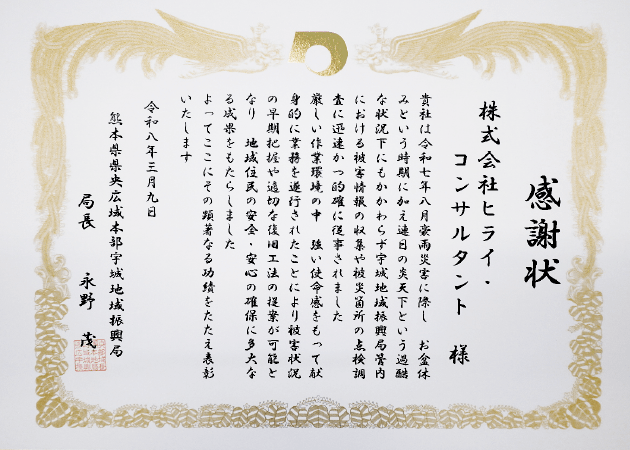 感謝状
株式会社ヒライ・
コンサルタント 様
貴社は令和七年八月豪雨災害に際し お盆休
みという時期に加え連日の炎天下という過酷
な状況下にもかかわらず宇城地域振興局管内
における被害情報の収集や被災箇所の点検調
査に迅速かつ的確に従事されました
厳しい作業環境の中 強い使命感をもって献
身的に業務を遂行されたことにより被害状況
の早期把握や適切な復旧工法の提案が可能と
なり 地域住民の安全・安心の確保に多大な
る成果をもたらしました
よってここにその顕著なる功績をたたえ表彰
いたします
令和八年三月九日
熊本県県央広域本部宇城地域振興局
局長 永野 茂